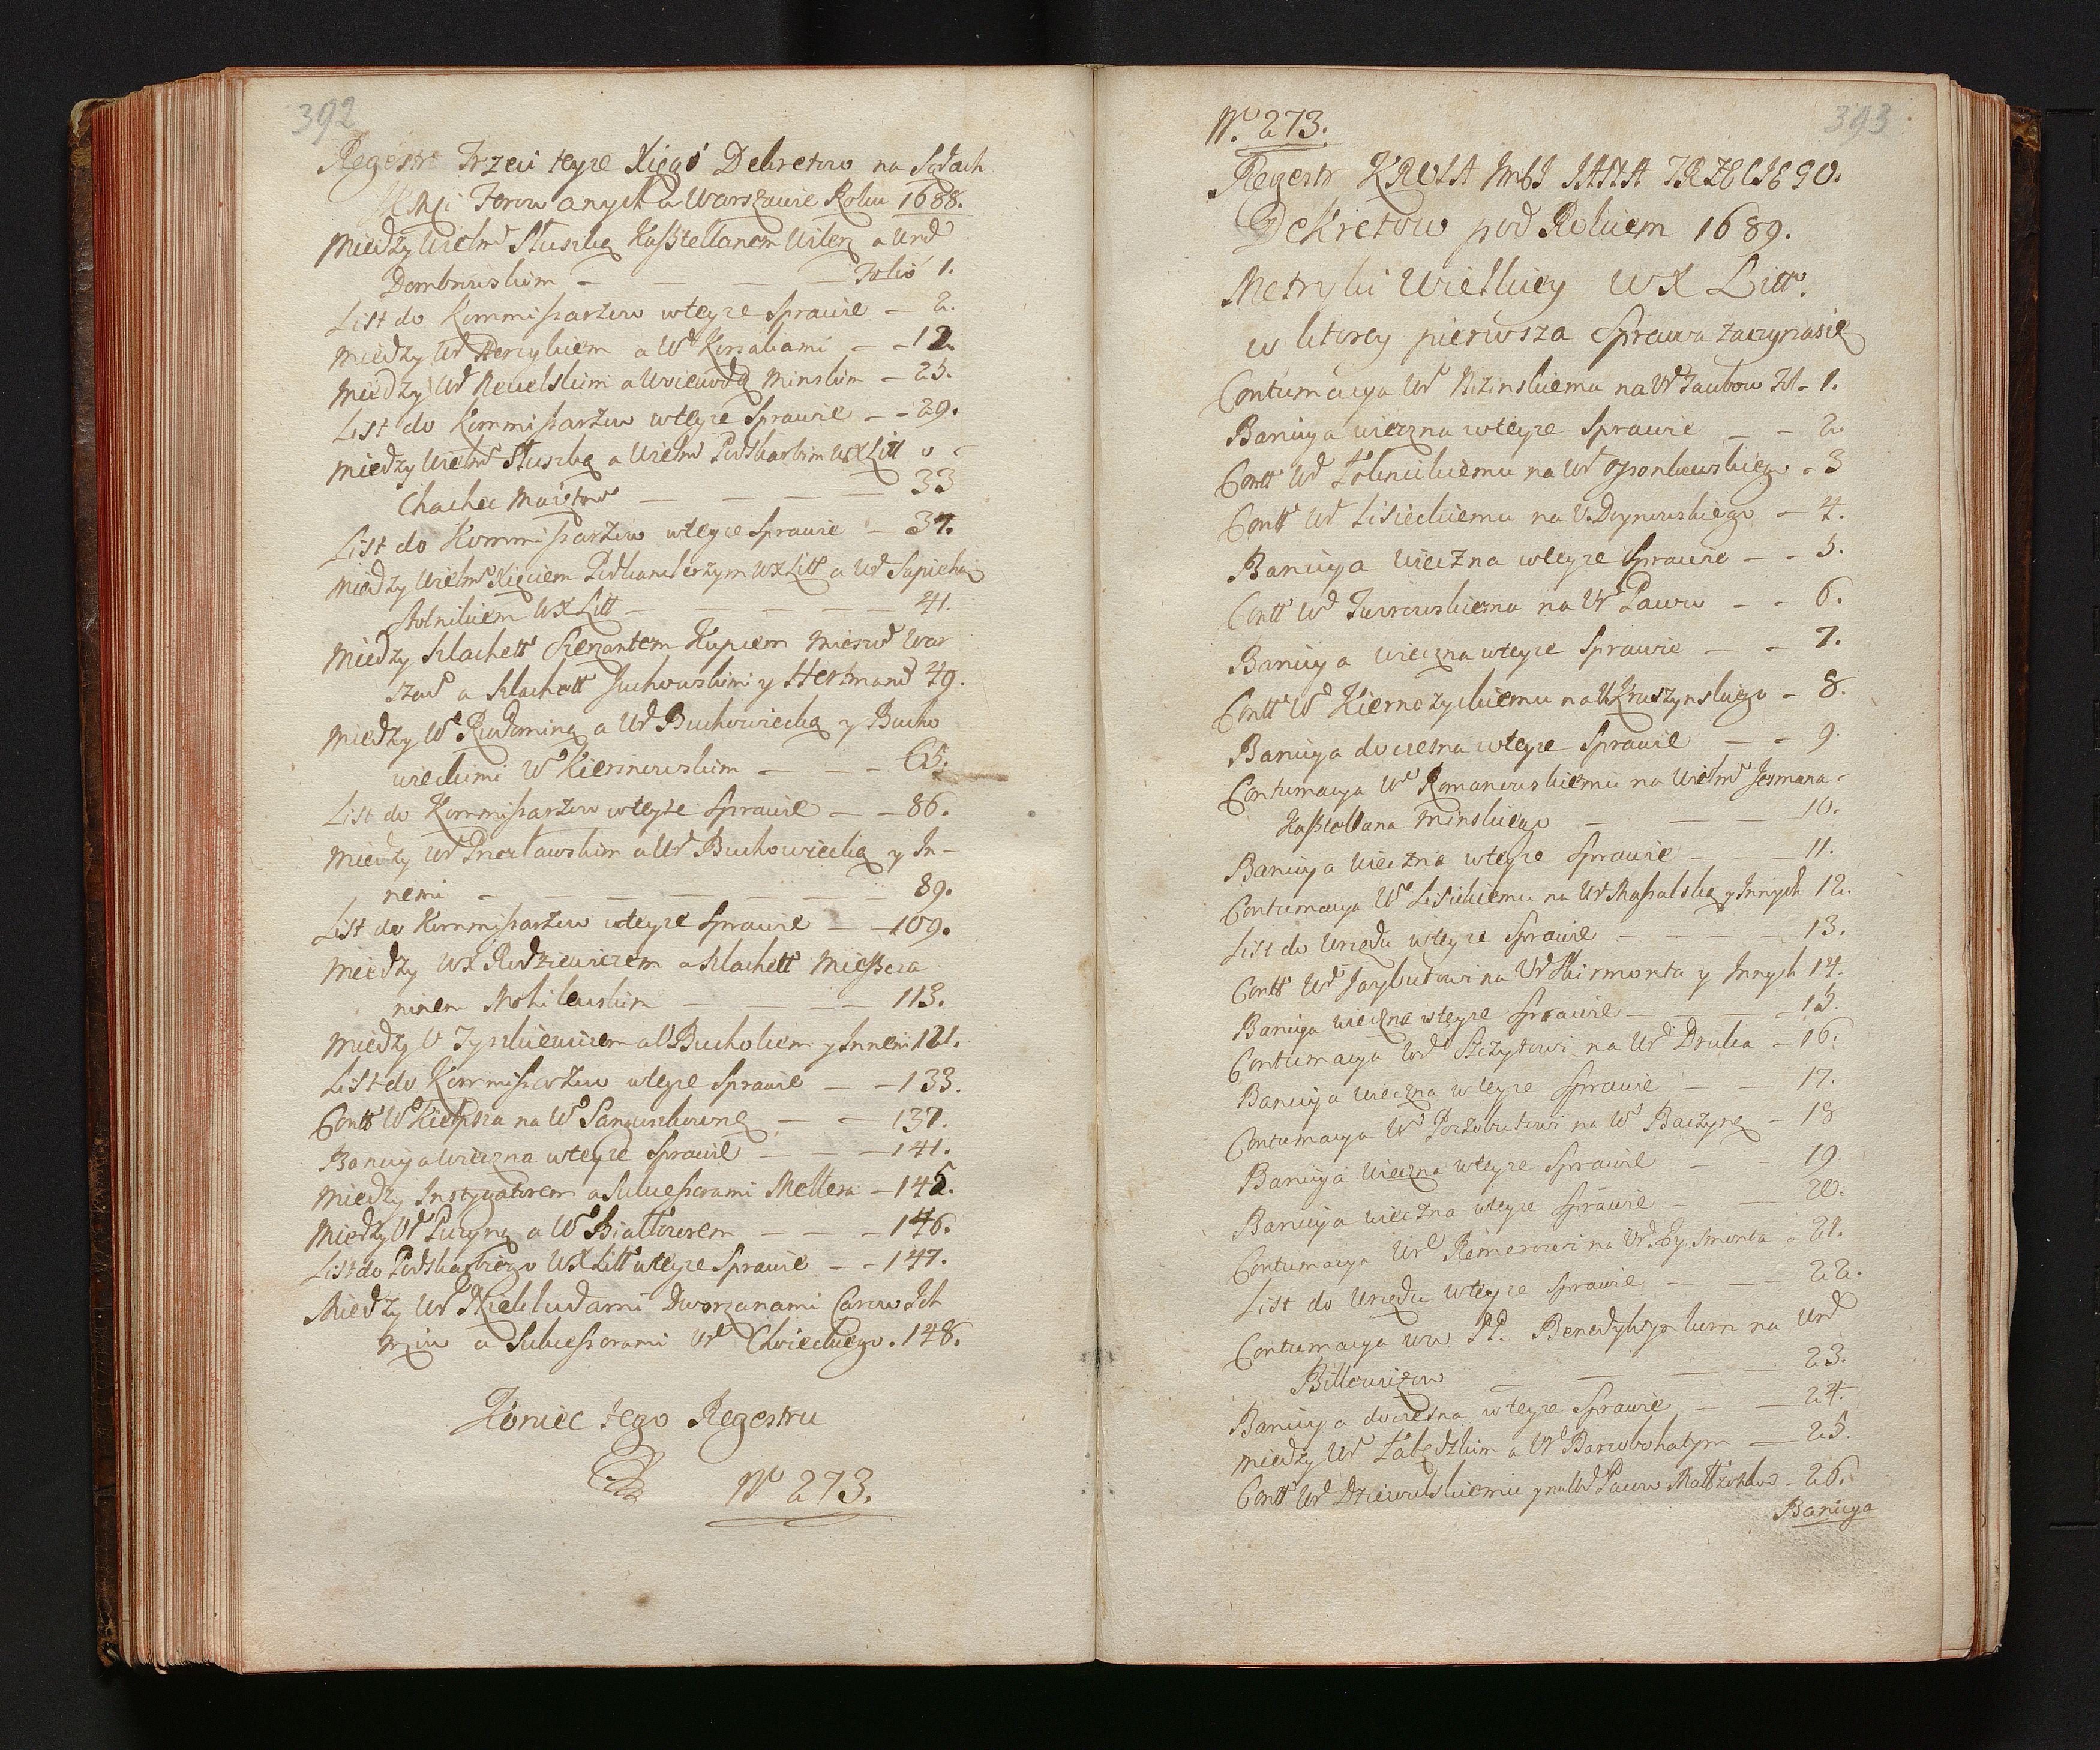 392
Regestr Trzeci teyże Xięgi Dekretow na Sądach
Ferowanych w Warszawie Roku 1688.
Miedzy Wielmo Słuszką Kasztellanem Wilen a Urd
Dombrowskim - - - - Folio 1.
List do Kommissarzow wteyże Sprawie - 2.
Miedzy Wd Hercykiem a Wd Korsakami - - 12.
Miedzy Wd Reuelskim a Woiewodą Minskim - 25.
List do Kommissarzow wteyze Sprawie - - 29.
Miedzy Wielmo Słuszką a Wielmo Podskarbim WXLitt o
Chachec Maiztow - - - - 33
List do Kommissarzow wteyze Sprawie - 37.
Miedzy Wielmo Xięciem Podkanclerzym WXLitt a Wd Sapiehą
Stolnikiem WXLitt - - - - - 41.
Miedzy Szlachett Kupcem Miescd War
szaw a Szlachett Juchowskimi y Hertmand 49.
Miedzy Wd Rudominą a Wd Buchowiecką y Bucho
wieckimi Wd Kiersnowskim - - - 65.
List do Kommissarzow wteyże Sprawie - - 86.
Miedzy Wd Przecławskim a Wd Buchowiecką y In-
nemi - - - - - - 89.
List do Kommissarzow wteyze Sprawie - - 109.
Miedzy WX Rodziewiczem a Szlachett Mieszcza
ninem Mohilewskim - - - 113.
Miedzy U Tyszkiewiczem a U Bucholcem y Innemi 121.
List do Kommissarzow wteyze Sprawie - - 133.
Contt Wd Kiełpsza na Wd Sanguszkownę - - 137.
Banicya wieczna wteyze Sprawie - - - 141.
Miedzy Instygatorem a Sukcessorami Mellera - 145.
Miedzy Wd Puzyną a Wd Białłozorem - - - 146.
List do Podskarbiego WXLitt wteyze Sprawie - - 147.
Miedzy Wd Niekludami Dworzanami Carow Ich
Mciw a Sukcessorami Wd Chreckiego. 148.
Koniec tego Regestru
No 273.
No. 273.
393.
Regestr KROLA Jmci JANA TRZECIEGO.
Dekretow pod Rokiem 1689.
Metryki Wielkiey WX Litt.
w ktorey pierwsza Sprawa zaczynasię
Contumacya Wd Nizinskiemu na Wd Jaubow Fol. 1.
Banicya wieczna wteyze Sprawie - - 2.
Contt Wd Żolinickiemu na Wd Gzonkowskiego - 3
Contt Wd Lisieckiemu na U. Doynowskiego - 4.
Banicya wieczna wteyze Sprawie - - 5.
Contt Wd Turrowskiemu na Wd Pacow - - 6.
Banicya wieczna wteyze Sprawie - - 7.
Contt Wd Kiernożyckiemu na Wd Kruszynskiego - 8.
Banicya doczesna wteyze Sprawie - - 9.
Contumacya Wd Romanowskiemu na Wielmo Jesmana -
Kasztellana Minskiego - - - 10.
Banicya wieczna wteyze Sprawie - - - 11.
Contumacya Wd Lisickiemu na Wd Massalską y Innych 12.
List do Urzędu wteyze Sprawie - - - - 13.
Contt Wd Jaybutowi na Wd Skirmonta y Innych 14.
Banicya wieczna wteyze Sprawie - - - 15.
Contumacya Wd Szczytowi na Wd Druka - 16.
Banicya wieczna wteyze Sprawie - - 17.
Contumacya Wd Porzobutowi na Wd Baczynę - 18
Banicya wieczna wteyze Sprawie - - 19.
Banicya wieczna wteyze Sprawie - - 20.
Contumacya Wd Remerowi na Wd Eysmonta - 21.
List do Urzędu wteyze Sprawie - - - 22.
Contumacya ww PP. Benedyktynkom na Urd
Billewiczow - - - - 23.
Banicya doczesna wteyze Sprawie - - 24.
Miedzy Wd Łabędzkim a Wd Barwbohatym - 25.
Contt Wd Dziewulskiemu y na Wd Pacow Małżonkow - 26.
Banicya